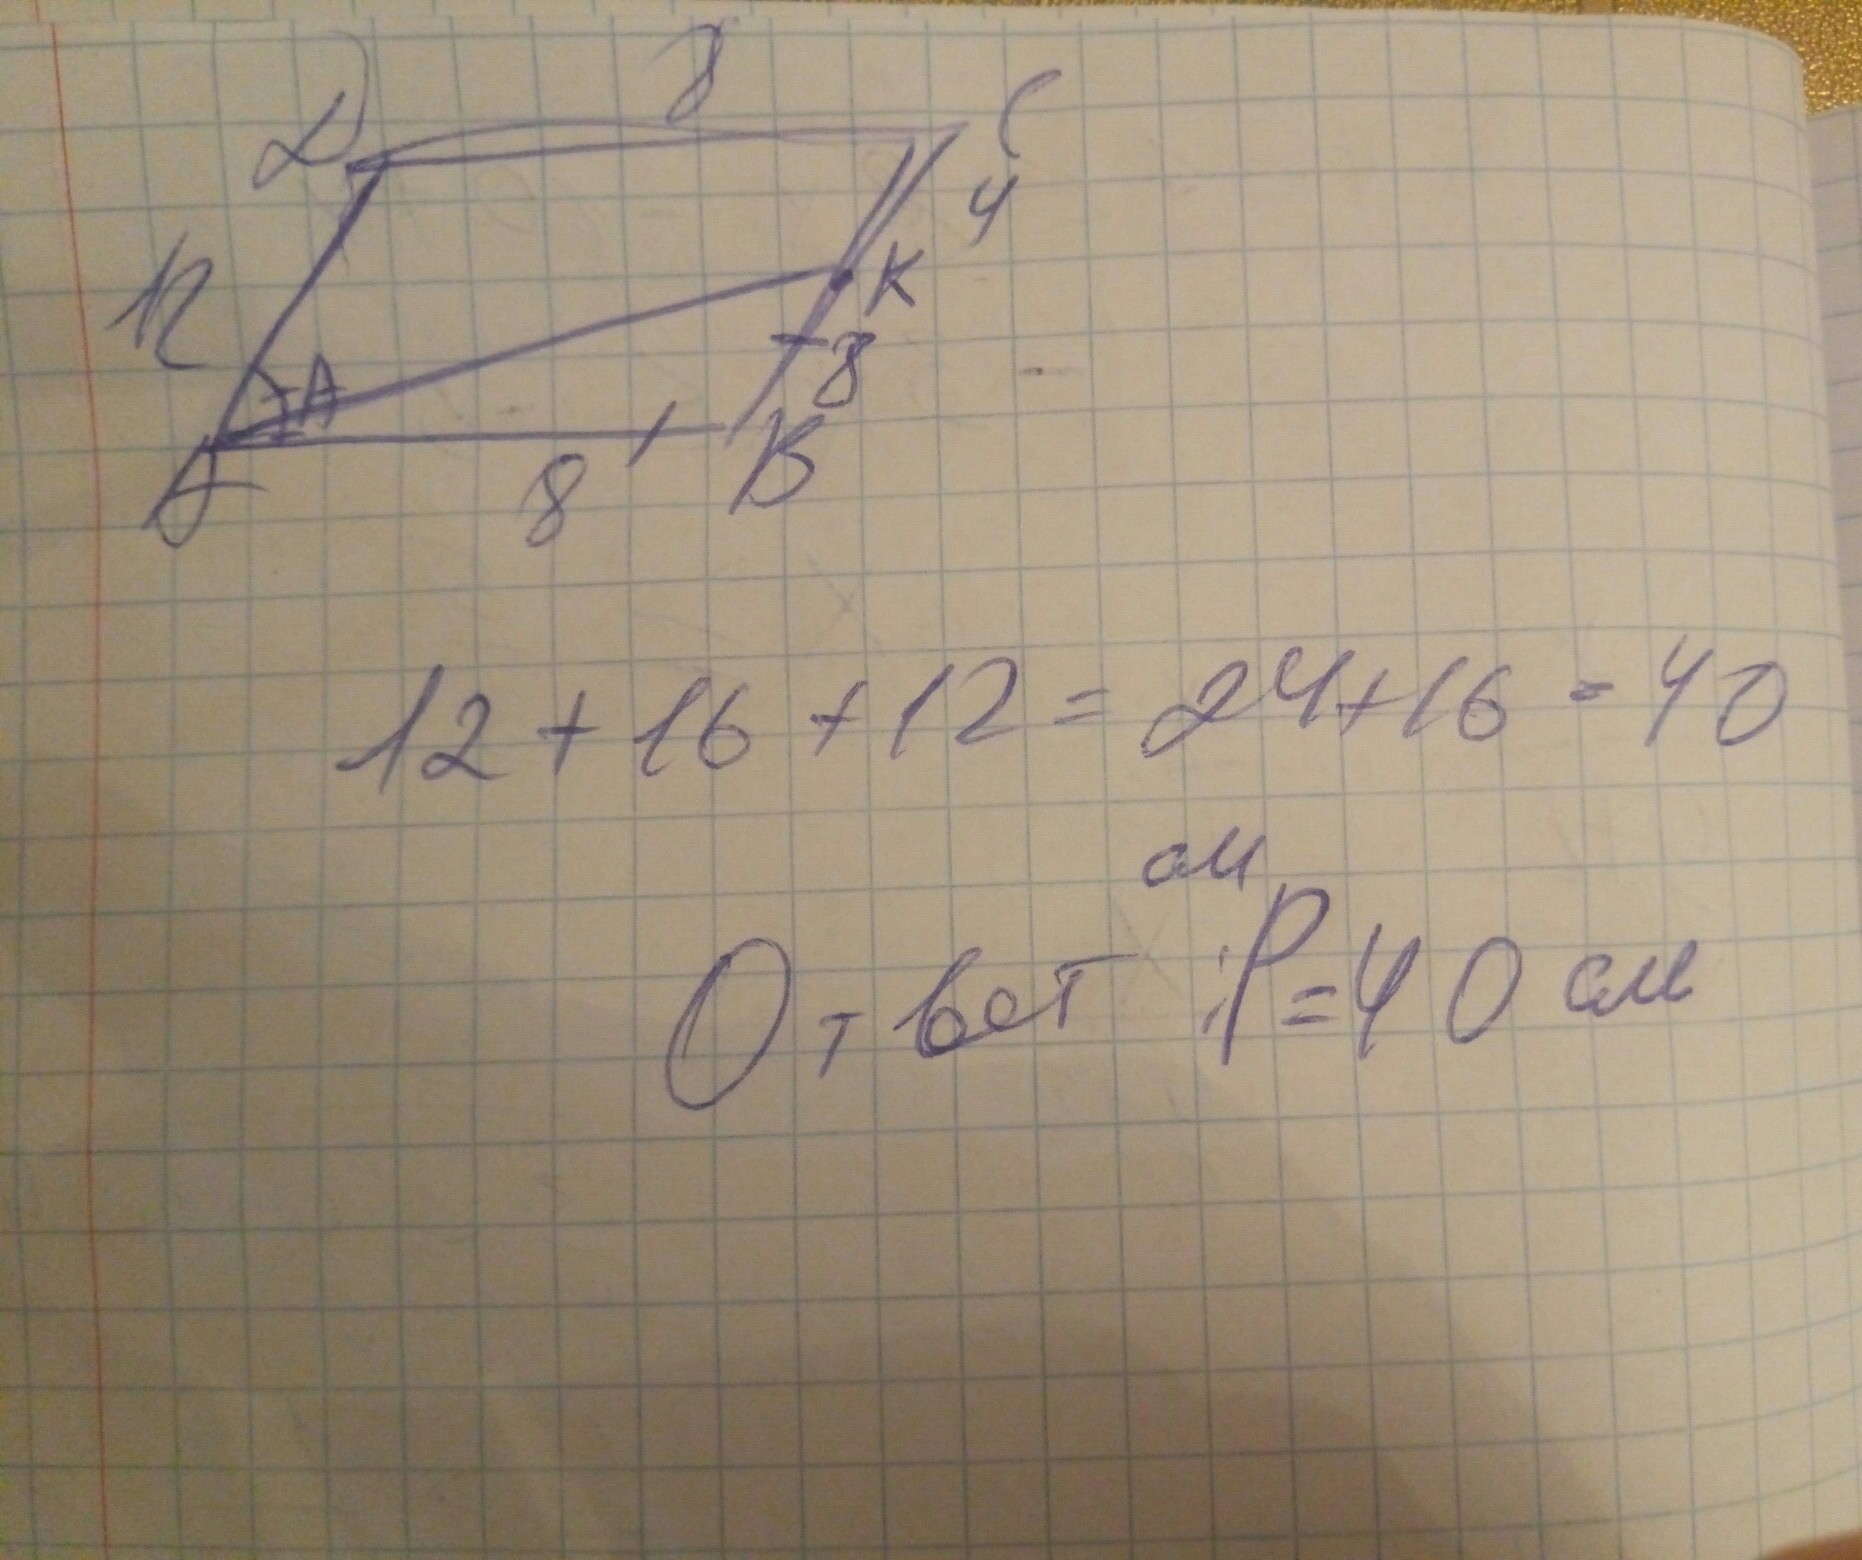 D 8 C
4
12 K
A 8
A 8 B
12 + 16 + 12 = 24 + 16 = 40
см
Ответ : P = 40 см